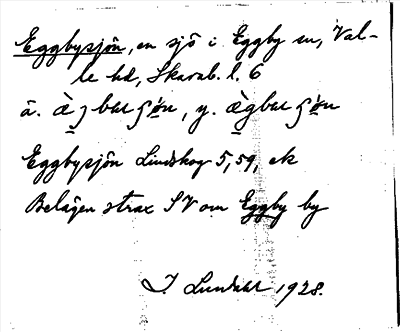 Eggbysjön, en sjö i Eggby sn, Val-
le hd, Skarab. l. 6
ä.
y.
Eggbysjön Lindskog 5, 59, ek
Belägen strax SV om Eggby by
I. Lundahl 1928.